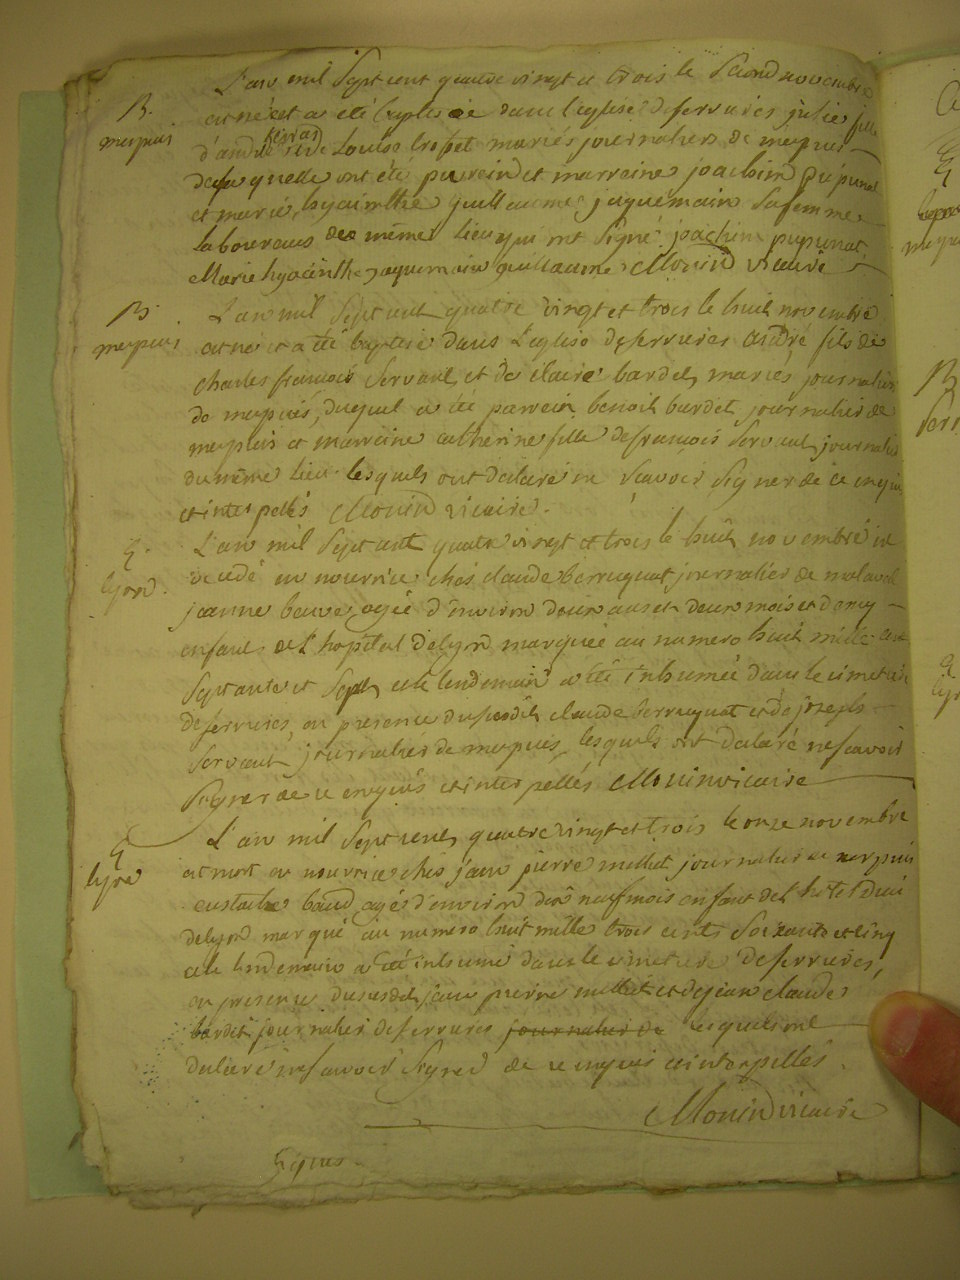 L'an mil sept cent quatre vingt et trois le second novembre
B.
mepuis
est né et a été baptisée dans l'eglise de serrures julie fille
d'andré feras et de Louise tropet mariés journaliers de mepuis
de laquelle ont été parrein et marreine joachim pupunat
et marie hyacinthe guillaume jaquemain sa femme
laboureurs de même lieu qui ont signé joachim pupunat
Marie hyacinthe jaquemain guillaume Monin vicaire
B
mepuis
L'an mil sept cent quatre vingt et trois le huit novembre
est né et a été baptisé dans l'eglise de serrures andré fils de
charles francois servant et de claire bardet mariés journaliers
de mepuis, duquel a été parrein benoit bardet journalier de
mepuis et marreine catherine fille de francois servant journalier
du même lieu lesquels ont déclaré ne scavoir signer de ce enquis
et interpellés Monin vicaire.
E.
lyon.
L'an mil sept cent quatre vingt et trois le huit novembre est
décédé en nourrice chés claude berruquat journalier de
jeanne agée d'environ deux ans et deux mois et demy
enfant de l'hopital de lyon marquée au numero huit mille cent
septante et sept, et le lendemain a été inhumée dans le cimetiere
de serrures, en presence du susdit claude berruquat et de joseph
servant journalier de mepuis, lesquels ont déclaré ne scavoir
signer de ce enquis et interpellés Monin vicaire
E
lyon
L'an mil sept cent quatre vingt et trois le onze novembre
est mort en nourrice chés jean pierre millet journalier de mepuis
eustache baud agé d'environ dix neuf mois enfant de l'hotel dieu
de lyon marqué au numero huit mille trois cents soixante et cinq
et le lendemain a été inhumé dans le cimetiere de serrures,
en presence du susdit jean pierre millet et de jean claude
bardet journalier de serrures journalier de lesquels ont
déclaré ne scavoir signer de ce enquis et interpellés.
Monin vicaire